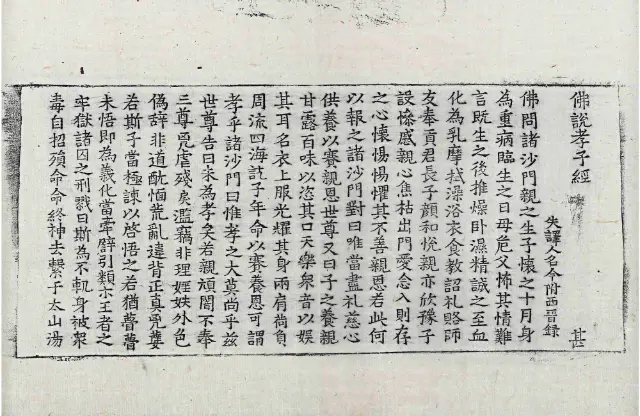 佛說孝子經 甚
失譯人名今附西晉錄
佛問諸沙門親之生子懷之十月身
為重病臨生之日母危父怖其情難
言既生之後推燥卧濕精誠之至血
化為乳摩拭澡浴衣食教詔禮賂師
友奉貢君長子顏和悅親亦欣豫子
設慘慼親心焦枯出門愛念入則存
之心懷惕惕懼其不善親恩若此何
以報之諸沙門對曰唯當盡禮慈心
供養以賽親恩世尊又曰子之養親
甘露百味以恣其口天樂衆音以娛
其耳名衣上服光耀其身兩肩荷負
周流四海訖子年命以賽養恩可謂
孝乎諸沙門曰惟孝之大莫尚乎兹
世尊告曰未為孝矣若親頑闇不奉
三尊兇虐殘戾濫竊非理婬妷外色
偽辝非道酖愐荒亂違背正真兇孽
若斯子當極諫以啓悟之若猶瞢瞢
未悟即為義化當牽譬引類示王者之
牢獄諸囚之刑戮曰斯為不軌身被衆
毒自招殞命命終神去繫于太山湯